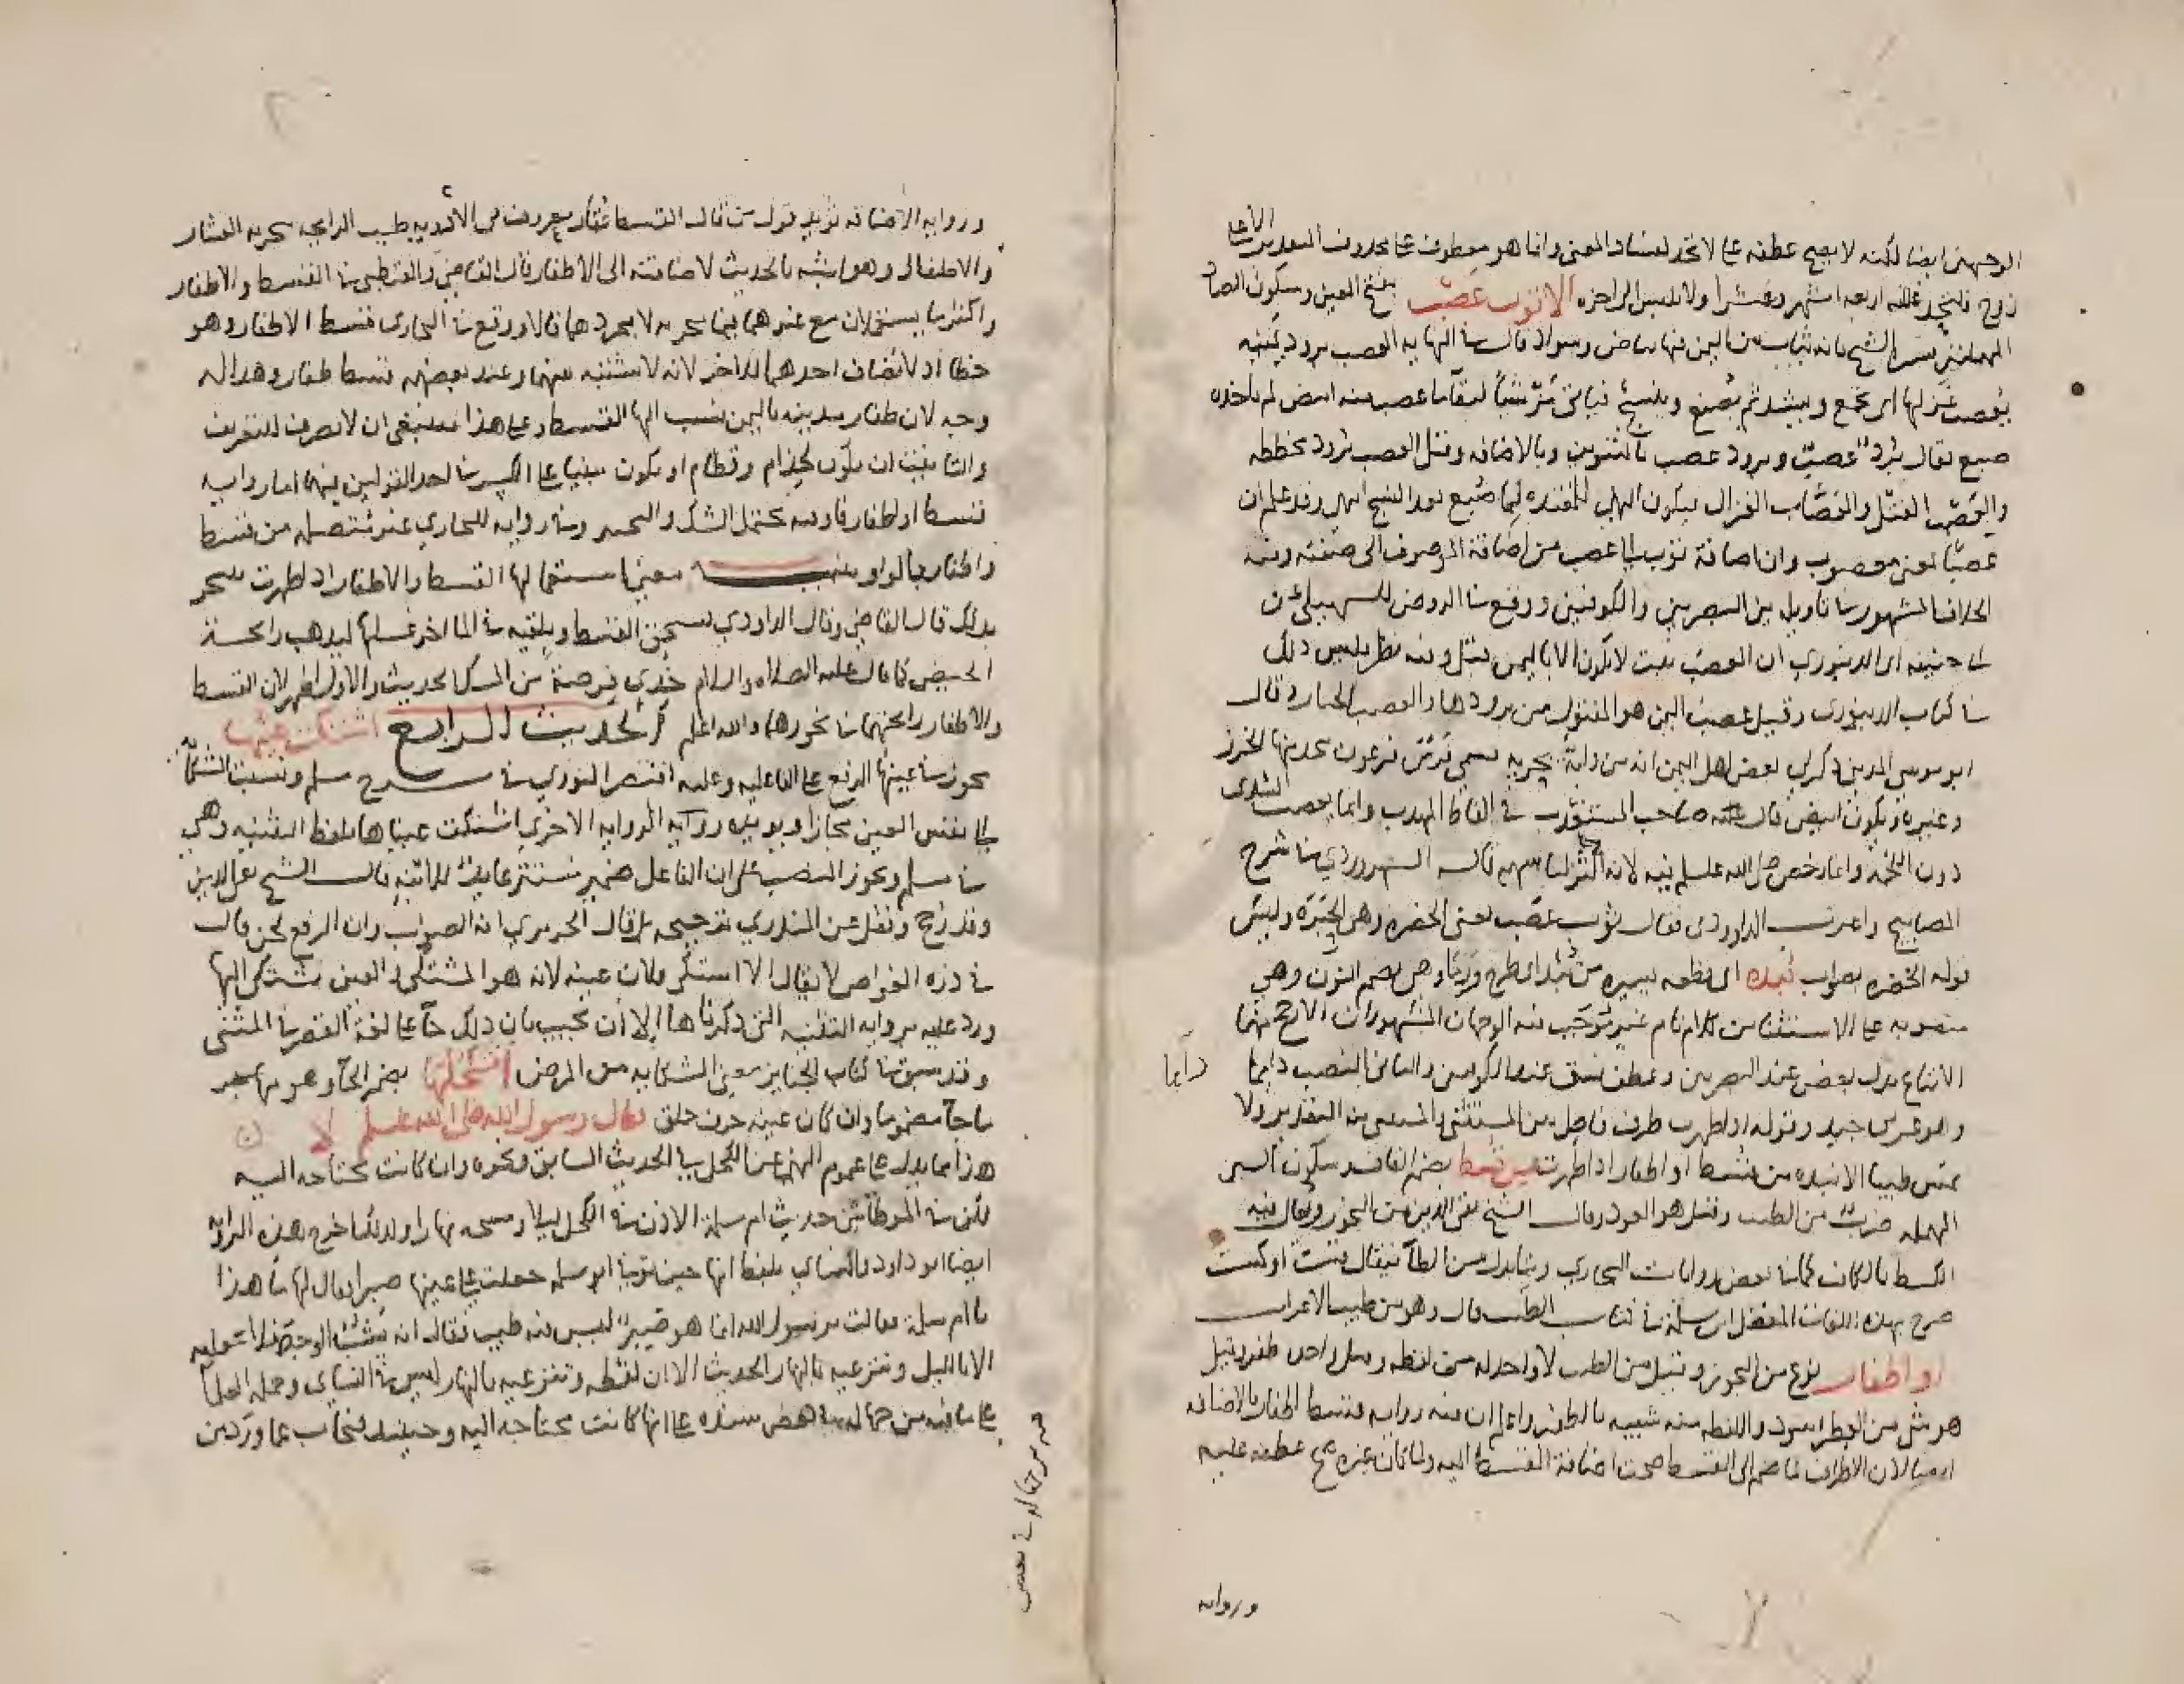 الوجهين ايضا لكنه لا يصح عطفه على لا تحد لفساد المعنى وانما هو معطوف على محذوف التقدير الا على
زوج فلتحد عليه اربعة اشهر وعشرا ولا تلبس الى اخره الا ثوب عصب بفتح العين وسكون الصاد
المهملتين فسره الشيخ بانه ثياب من اليمن فيها بياض وسواد قال في النهايه العصب برود يمنيه
يعصب غزلها اي يجمع ويشد ثم يصبغ وينسج فياتي موشيا لبقا ما عصب منه ابيض لم ياخذه
صبغ يقال برد عصب وبرود عصب بالتنوين وبالاضافه وقيل العصب برود مخططه
والعصب الفتل والعصاب الغزال فيكون النهي للمعتده لما صبغ بعد النسج انتهى وقد علم ان
عصبا بمعنى معصوب وان اضافة ثوب الى عصب من اضافة الموصوف الى صفته وفيه
الخلاف المشهور في تاويله بين البصريين والكوفيين ووقع في الروض للسهيلي عن
ابي حنيفه اي الدينوري ان العصب نبت لا يكون الا باليمن قيل وفيه نظر فليس ذلك
في كتاب الدينوري وقيل عصب اليمن هو المفتول من برودها والعصب الخيار وقال
ابو موسى المديني ذكر لي بعض اهل اليمن انه من دابة بحريه تسمى فرس فرعون يتخذ منها الخرز
وغيره ويكون ابيض قاله صاحب المستعذب في الفاظ المهذب وانما يعصب السدى
دون اللحمة وانما رخص صلى الله عليه وسلم فيه لانه قال السهروردي في شرح
المصابيح واغرب الداودي فقال ثوب عصب يعني الخضره وهي الحبره وليس
قوله الخضره بصواب نبذه اي قطعه يسيره من نبذ اي طرح ورمى وهي بضم النون وهي
منصوبه على الاستثنا من كلام تام غير موجب فيه الوجهان المشهوران الارجح منهما
الاتباع بدل بعض عند البصريين وعطف نسق عند الكوفيين والثاني النصب دائما
وهو عربي جيد وقوله اذا طهرت ظرف فاصل بين المستثنى والمستثنى منه التقدير ولا
تمس طيبا الا نبذه من قسط او اظفار اذا طهرت من قسط بضم القاف وسكون السين
المهمله ضرب من الطيب وقيل هو العود وقال الشيخ تقي الدين من البخور ويقال فيه
الكسط بالكاف كما في بعض روايات البخاري وبتا بدل من الطا فيقال قست او كست
صرح بهذه اللغات المفضل ابن سلمة في كتاب الطيب قال وهو من طيب الاعراب
او اظفار نوع من البخور وقيل من الطيب لا واحد له من لفظه وقيل واحده ظفر وقيل
هو شي من العطر اسود والقطعه منه شبيهه بالظفر واعلم ان فيه روايه قسط اظفار بالاضافه
لان الاظفار لما ضم الى القسط صحت اضافة القسط اليه ولما كان غيره صح عطفه عليه
دائما
وروايه
وروايه الاضافه تؤيد قول من قال القسط عقار معروف في الادويه طيب الرايحه تتبخر به النفسا
والاطفال وهو اشبه بالحديث لاضافته الى الاظفار قال القاضي والقرطبي في القسط والاظفار
واكثر ما يستعملان مع غيرهما فيما يتبخر به لا بمجردهما قالا ووقع في البخاري قسط الاظفار وهو
خطا اذ لا يضاف احدهما للاخر لانه لا نسبة بينهما وعند بعضهم قسط ظفار وهذا له
وجه لان ظفار مدينه باليمن نسب اليها القسط وعلى هذا فينبغي ان لا تصرف للتعريف
والتانيث ان يكون كحذام وقطام او يكون مبنيا على الكسر في احد القولين فيهما اما روايه
قسط او اظفار فاو فيه تحتمل الشك والتخيير وفي روايه للبخاري عند غسلها من قسط
واظفار بالواو تنبيه معنى استعمالها القسط والاظفار اذا طهرت تتبخر
بذلك قال القاضي وقال الداودي تسحق القسط وتلقيه في الما اخر غسلها ليذهب رائحة
الحيض كما قال عليه الصلاه والسلام خذي فرصة من المسك الحديث والاول اظهر لان القسط
والاظفار رائحتهما في بخورهما والله اعلم الحديث الرابع اشتكت عينها
يجوز في عينها الرفع على الفاعليه وعليه اقتصر النووي في شرح مسلم ونسبت الشكاة
الى نفس العين مجازا ويؤيده رواية الروايه الاخرى اشتكت عيناها بلفظ التثنيه وهي
في مسلم ويجوز النصب على ان الفاعل ضمير مستتر عايد للابنه قال الشيخ تقي الدين
وقد رجح ونقل عن المنذري ترجيحه بل قال الحريري انه الصواب وان الرفع لحن قال
في درة الغواص لا يقال الا اشتكى فلان عينه لانه هو المشتكي لا العين تشتكي اليها
ورد عليه بروايه التثنيه التي ذكرناها الا ان يجيب بان ذلك جا على لغة القصر في المثنى
وقد سبق في كتاب الجنايز معنى الشكايه من المرض افنكحلها بضم الحا وهو مما
ما جا مضموما وان كان عينه حرف حلق فقال رسول الله صلى الله عليه وسلم لا
هذا مما يدل على عموم النهي عن الكحل في الحديث السابق ونحوه وان كانت محتاجه اليه
لكن في الموطا من حديث ام سلمة الاذن في الكحل ليلا ومسحه نهارا ولفظه اخرج هذه الروايه
ايضا ابو داود والنساي بلفظ انها حين توفي ابو سلمه جعلت على عينها صبرا فقال لها ما هذا
يا ام سلمة فقالت يا رسول الله انما هو صبر ليس فيه طيب فقال انه يشب الوجه فلا تجعليه
الا بالليل وتنزعيه بالنهار الحديث الا ان لفظه وتنزعيه بالنهار ليس في النساي وحمله العلما
على ما فيه من جهالة في بعض سنده على انها كانت محتاجه اليه وحينئذ فيجاب عما ورد من